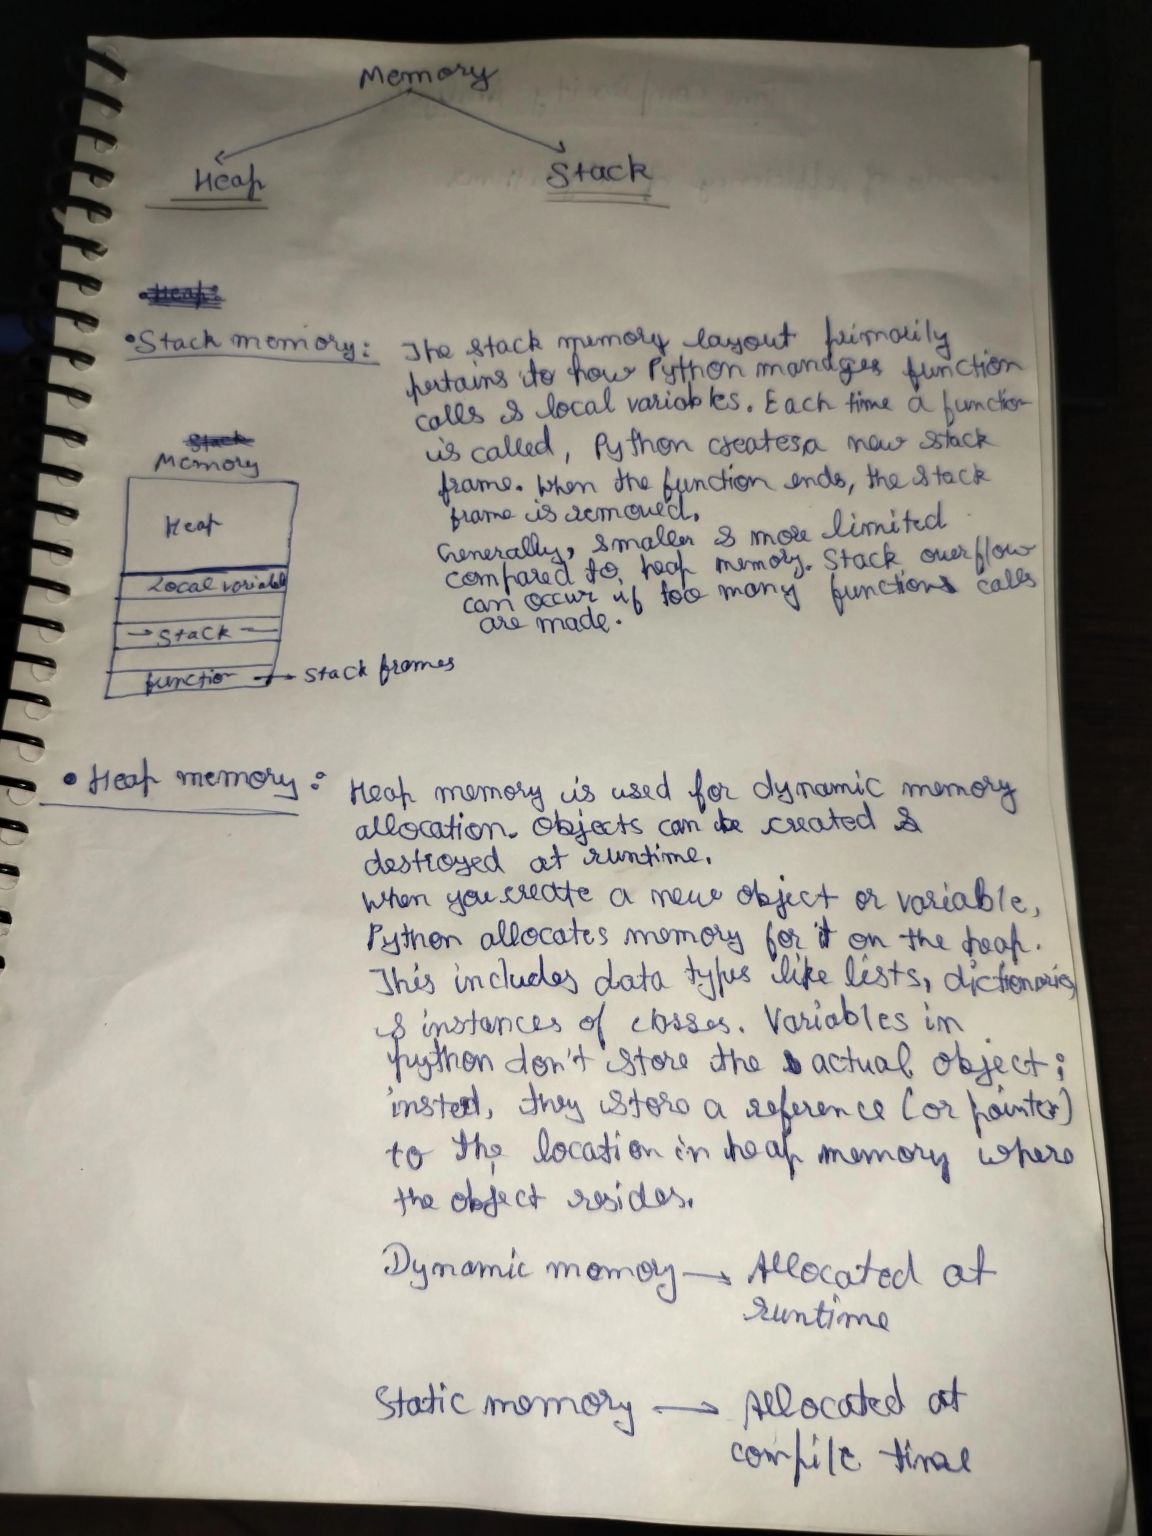 Memory
Heap
Stack
• Stack memory:
The stack memory layout primarily
pertains to how Python manages function
calls & local variables. Each time a function
is called, Python creates a new stack
frame. When the function ends, the stack
frame is removed.
Generally, smaller & more limited
compared to heap memory. Stack overflow
can occur if too many functions calls
are made.
Memory
Heap
Local variable
Stack
function → Stack frames
• Heap memory:
Heap memory is used for dynamic memory
allocation. Objects can be created &
destroyed at runtime.
When you create a new object or variable,
Python allocates memory for it on the heap.
This includes data types like lists, dictionaries
& instances of classes. Variables in
python don't store the actual object;
insted, they store a reference (or pointer)
to the location in heap memory where
the object resides.
Dynamic memory → Allocated at
runtime
Static memory → Allocated at
compile time